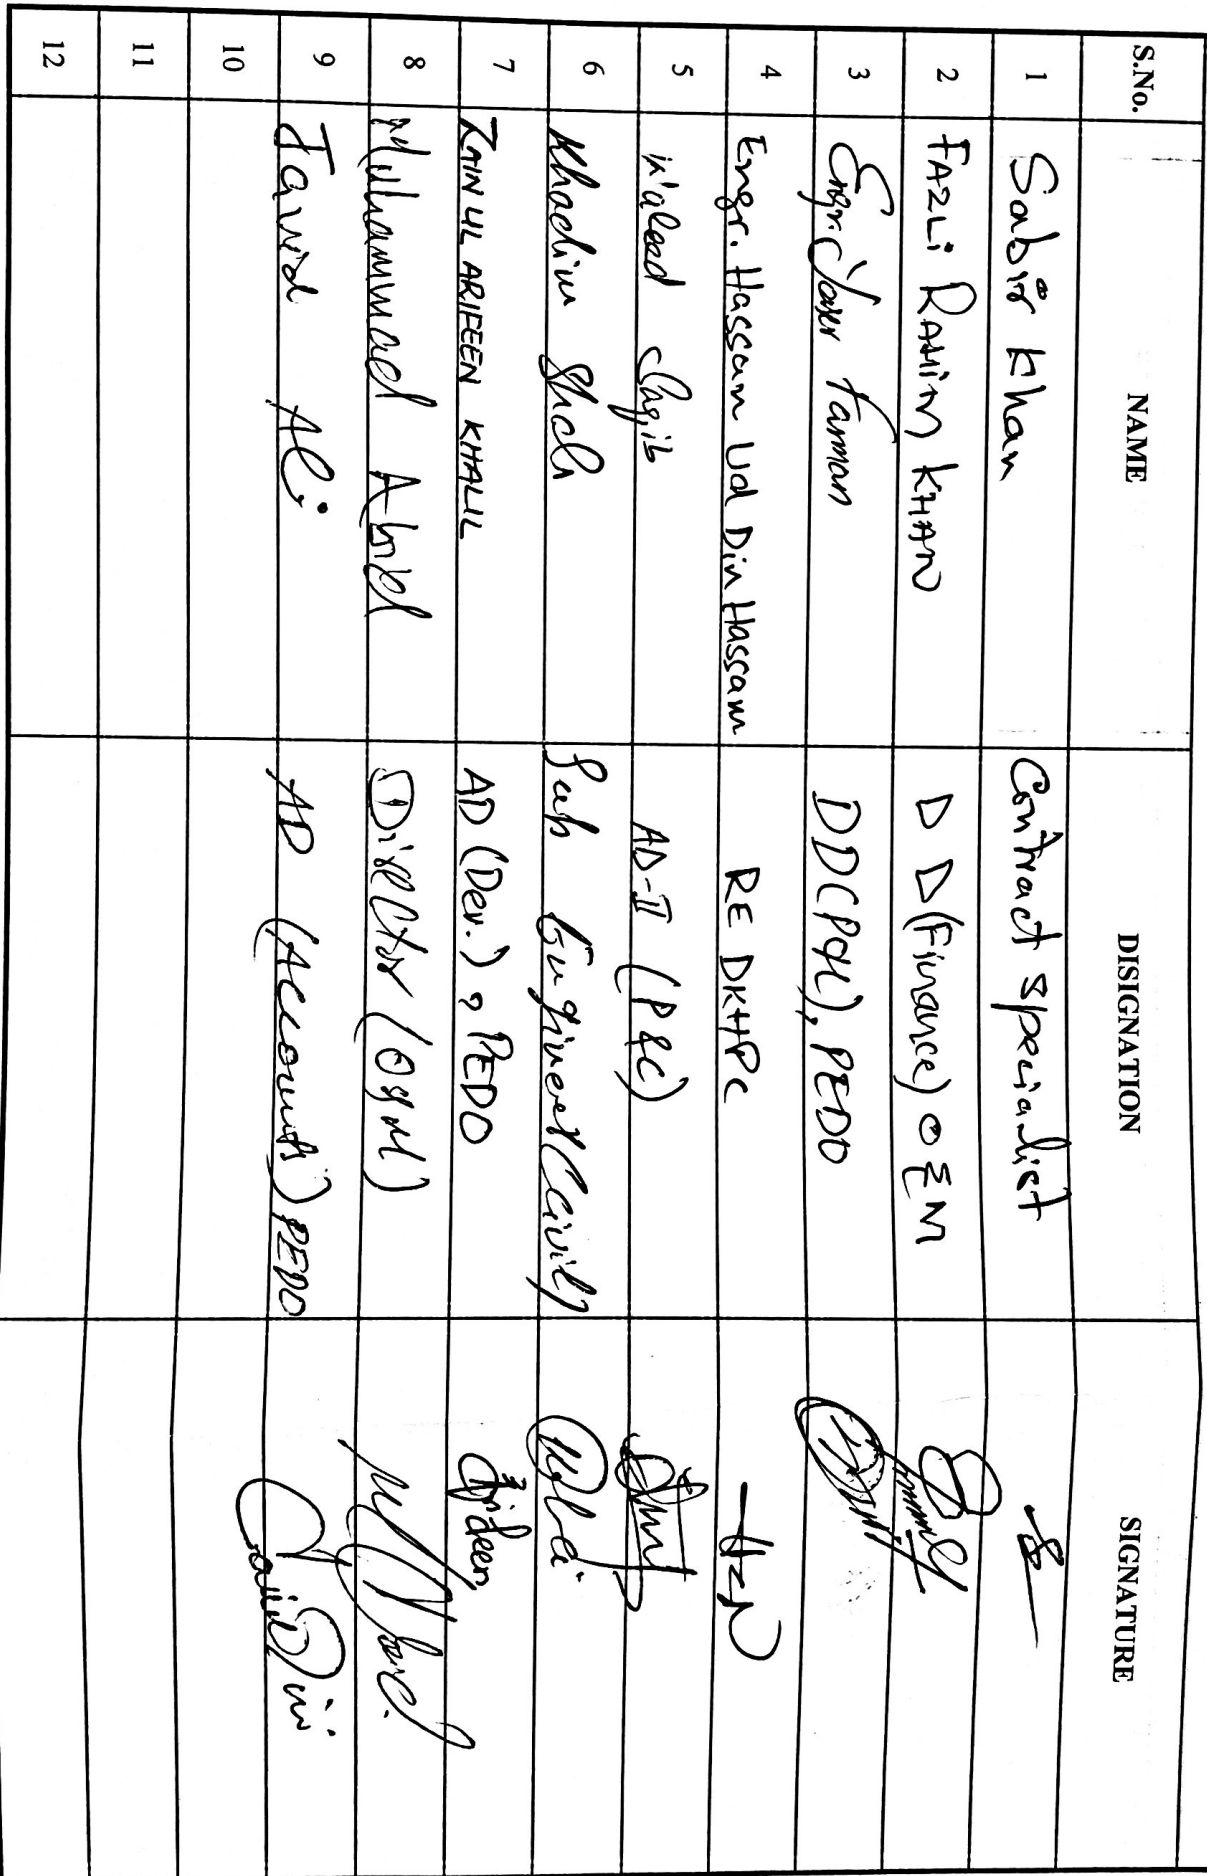 S.No. NAME DISIGNATION SIGNATURE
1 Sabir Khan Contract Specialist
2 FAZLi RAHiM KHAN D D (Finance) O & M
3 Engr. Yaser Farman DD(P&C), PEDO
4 Engr. Hassam Ud Din Hassam RE DKHPC
5 AD-II (P&C)
6 Khadim Shah Sub Engineer (Civil)
7 ZAIN UL ARIFEEN KHALIL AD (Dev.), PEDO
8 Muhammad Abid Director (O&M)
9 Javid Ali AD (Accounts) PEDO
10
11
12